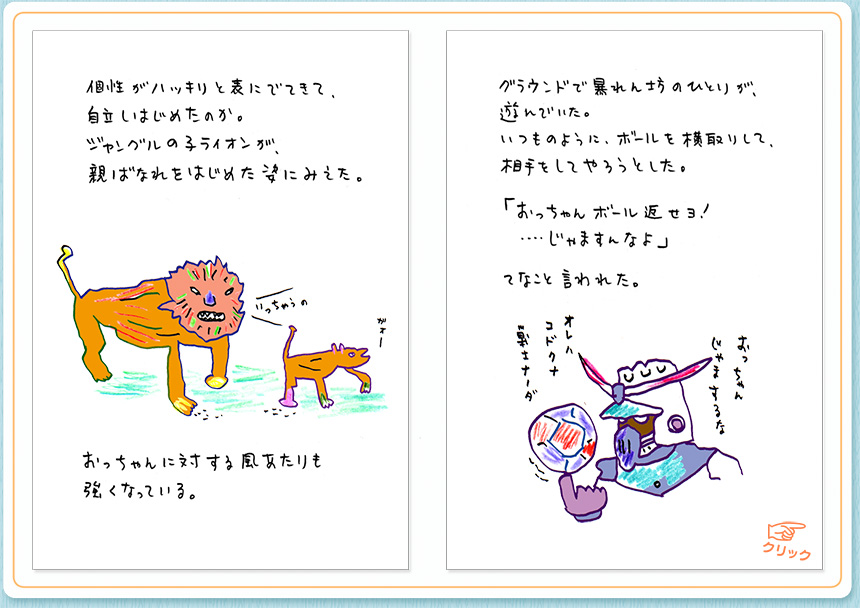 個性がハッキリと表にでてきて、
自立しはじめたのか。
ジャングルの子ライオンが、
親ばなれをはじめた姿にみえた。
いっちゃうの
ガォー
おっちゃんに対する風あたりも
強くなっている。
グラウンドで暴れん坊のひとりが、
遊んでいた。
いつものように、ボールを横取りして、
相手をしてやろうとした。
「おっちゃんボール返せヨ!
‥‥じゃますんなよ」
てなこと言われた。
オレハ
コドクナ
戦士ナーダ
おっちゃん
じゃまするな
クリック